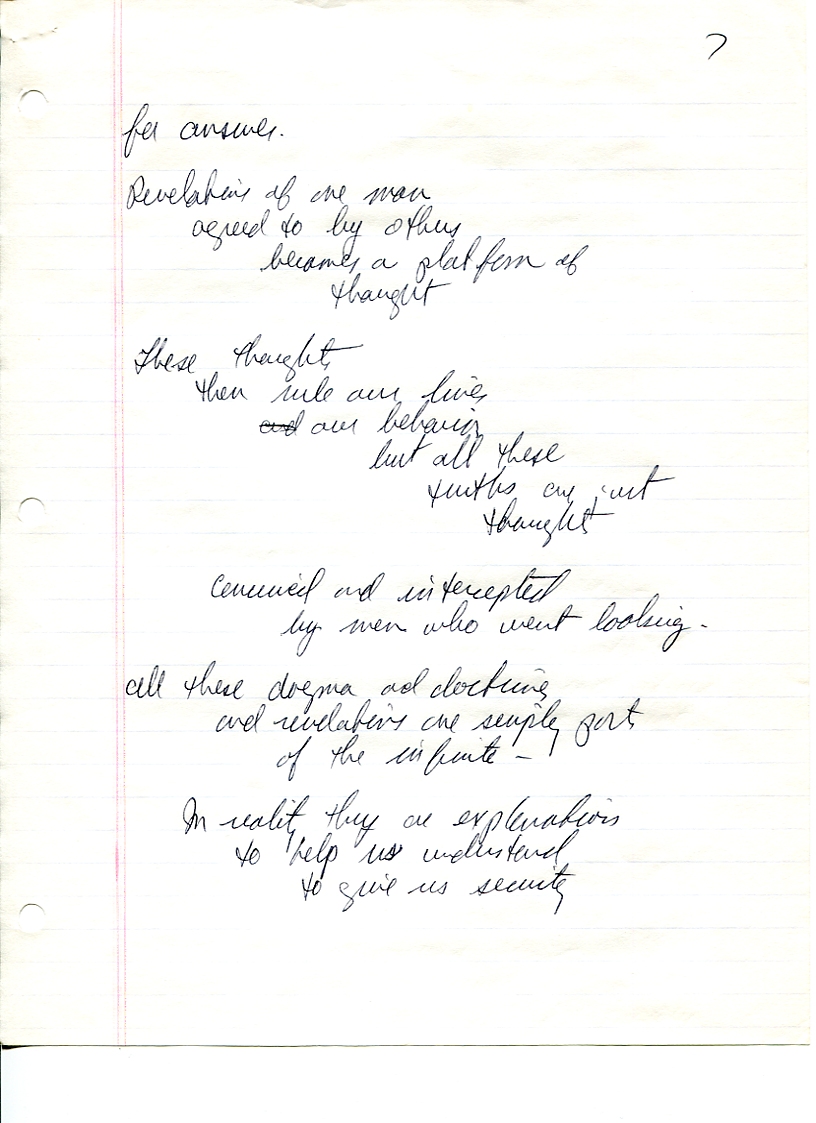 7
for answers.
Revelations of one man
agreed to by others
becomes a platform of
thought
These thoughts
then rule our lives
and our behavior
but all these
truths are just
thoughts
conceived and intercepted
by men who went looking.
all these dogma and doctrines
and revelations are simply parts
of the infinite –
In reality they are explanations
to help us understand
to give us security